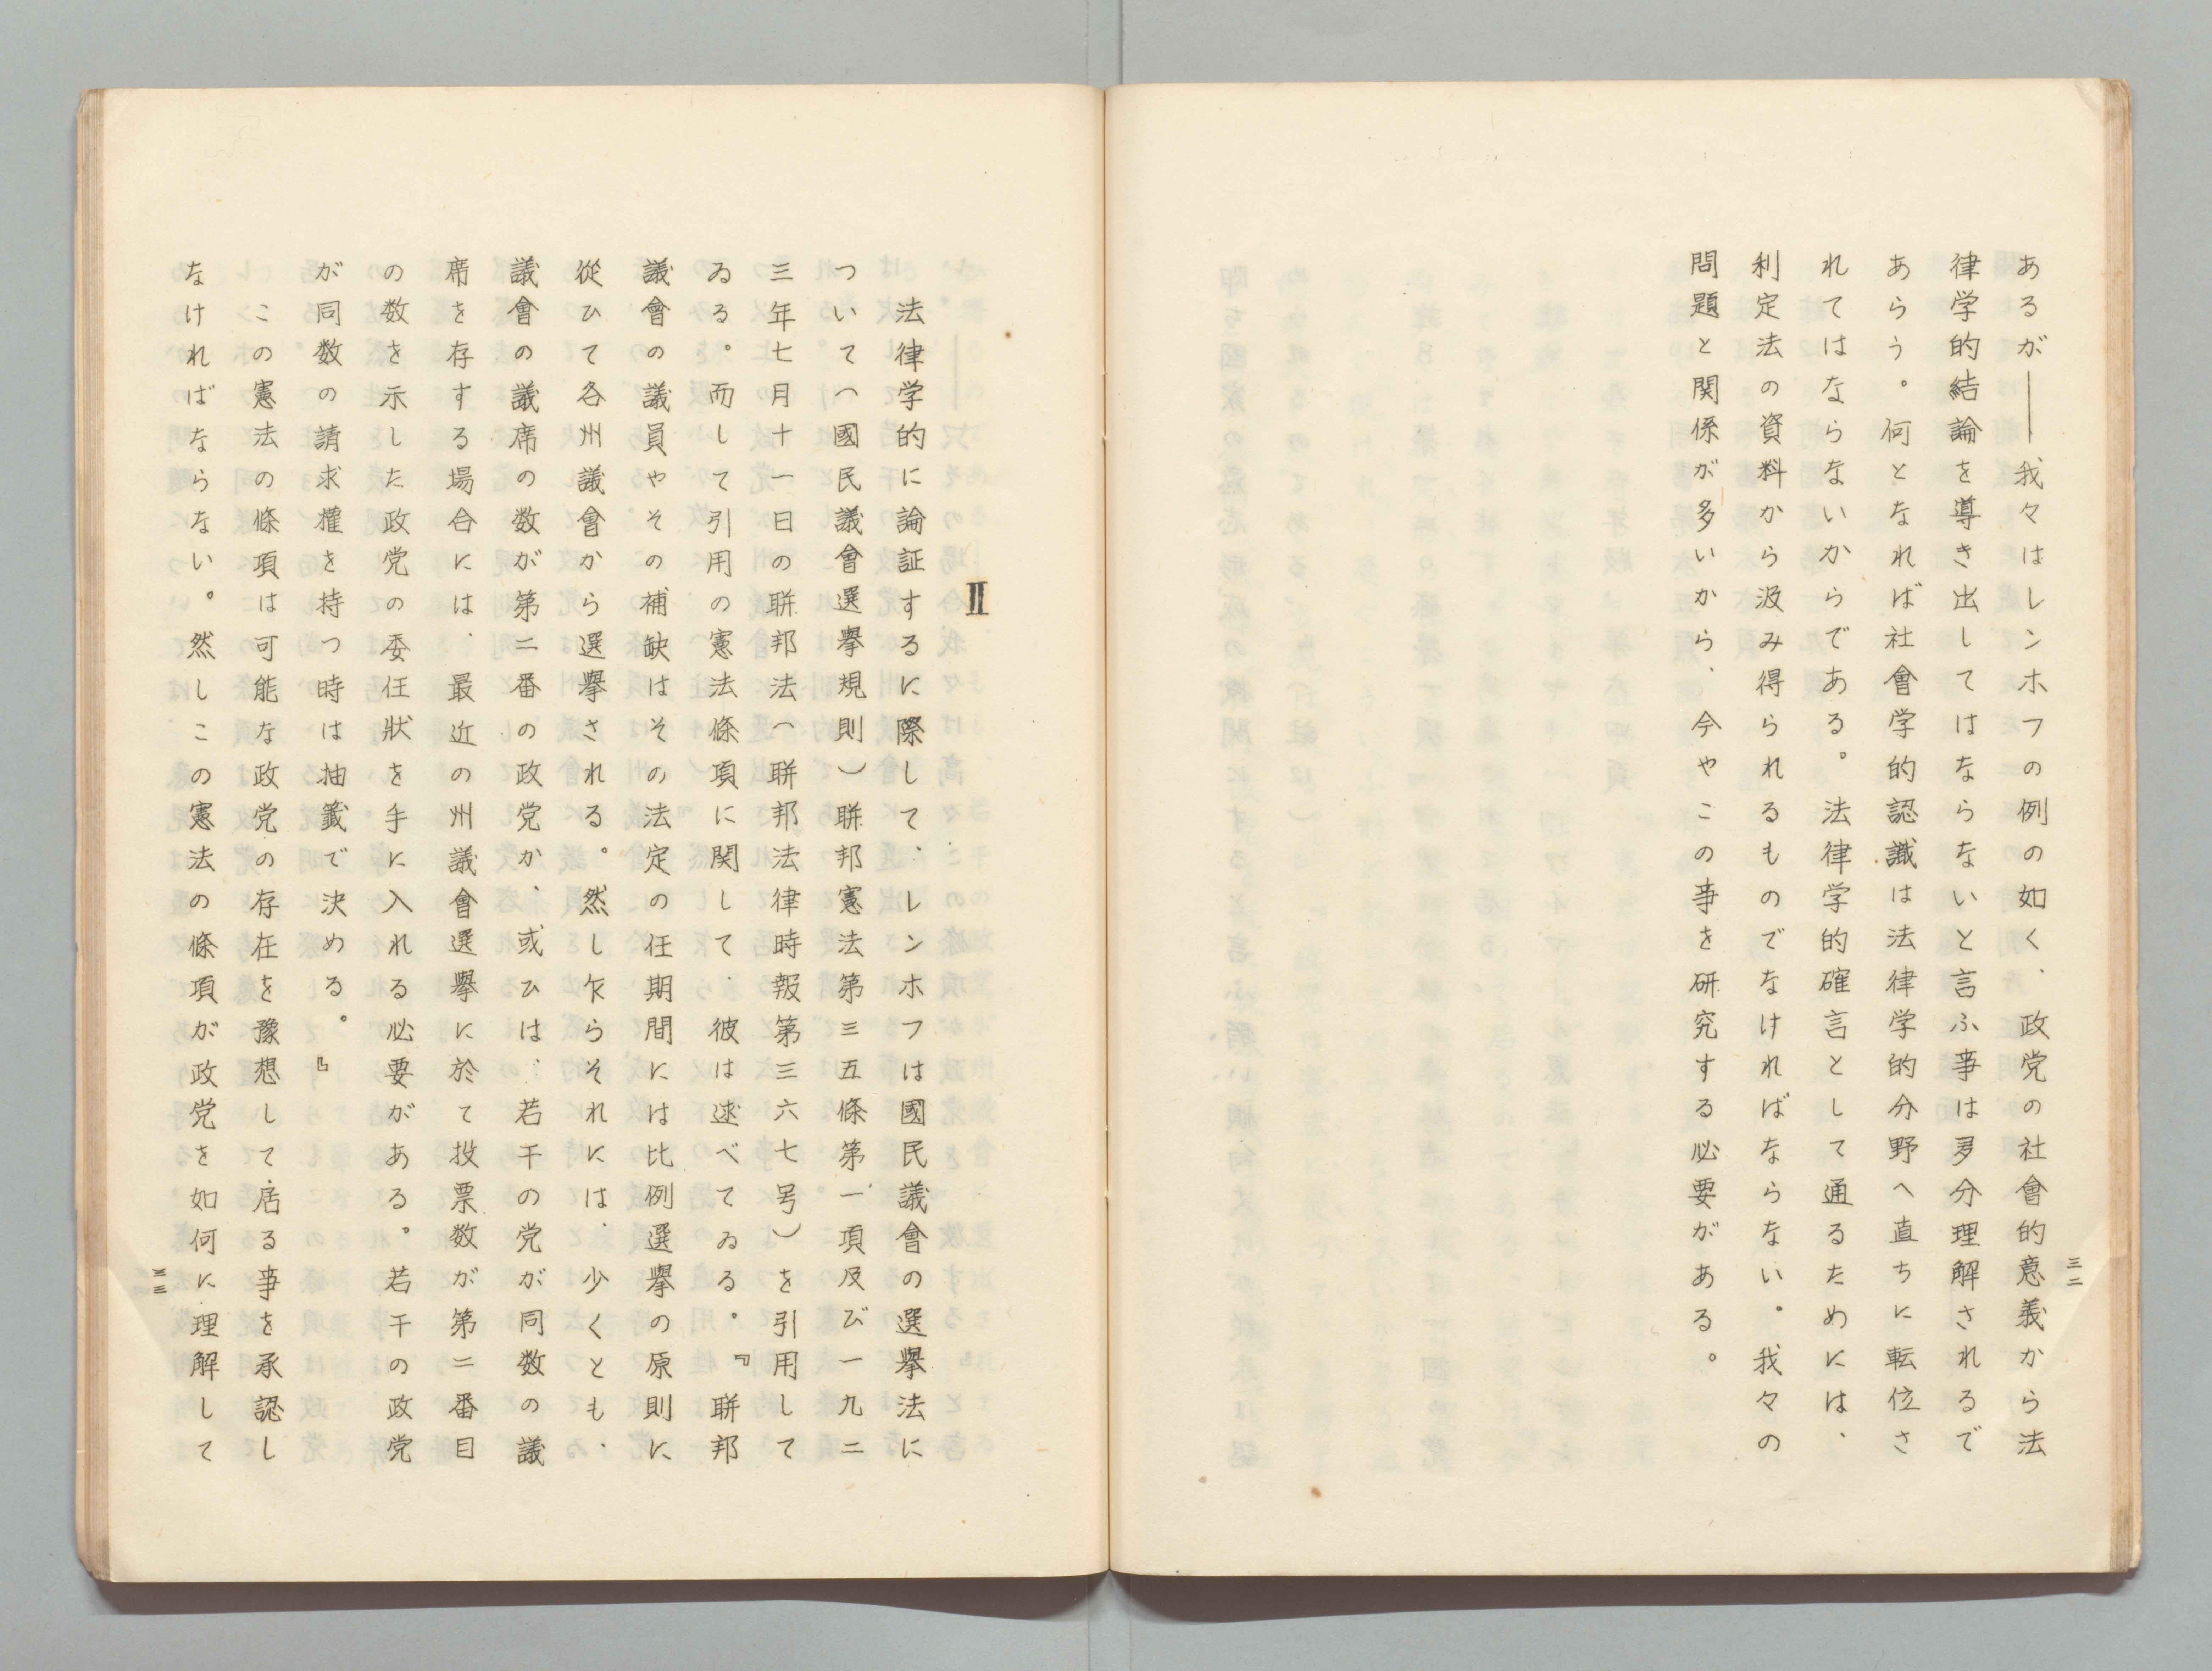 あるが――我々はレンホフの例の如く、政党の社會的意義から法
律学的結論を導き出してはならないと言ふ事は多分理解されるで
あらう。何となれば社會学的認識は法律学的分野へ直ちに転位さ
れてはならないからである。法律学的確言として通るためには、
利定法の資料から汲み得られるものでなければならない。我々の
問題と関係が多いから、今やこの事を研究する必要がある。
三二
Ⅱ
法律学的に論証するに際して、レンホフは國民議會の選擧法に
ついて（國民議會選擧規則）聯邦憲法第三五條第一項及び一九二
三年七月十一日の聯邦法（聯邦法律時報第三六七号）を引用して
ゐる。而して引用の憲法條項に関して、彼は述べてゐる。『聯邦
議會の議員やその補缺はその法定の任期間には比例選擧の原則に
從ひて各州議會から選擧される。然し乍らそれには、少くとも、
議會の議席の数が第二番の政党か、或ひは、若干の党が同数の議
席を存する場合には、最近の州議會選擧に於て投票数が第二番目
の数を示した政党の委任狀を手に入れる必要がある。若干の政党
が同数の請求權を持つ時は抽籤で決める。』
この憲法の條項は可能な政党の存在を豫想して居る事を承認し
なければならない。然しこの憲法の條項が政党を如何に理解して
三三